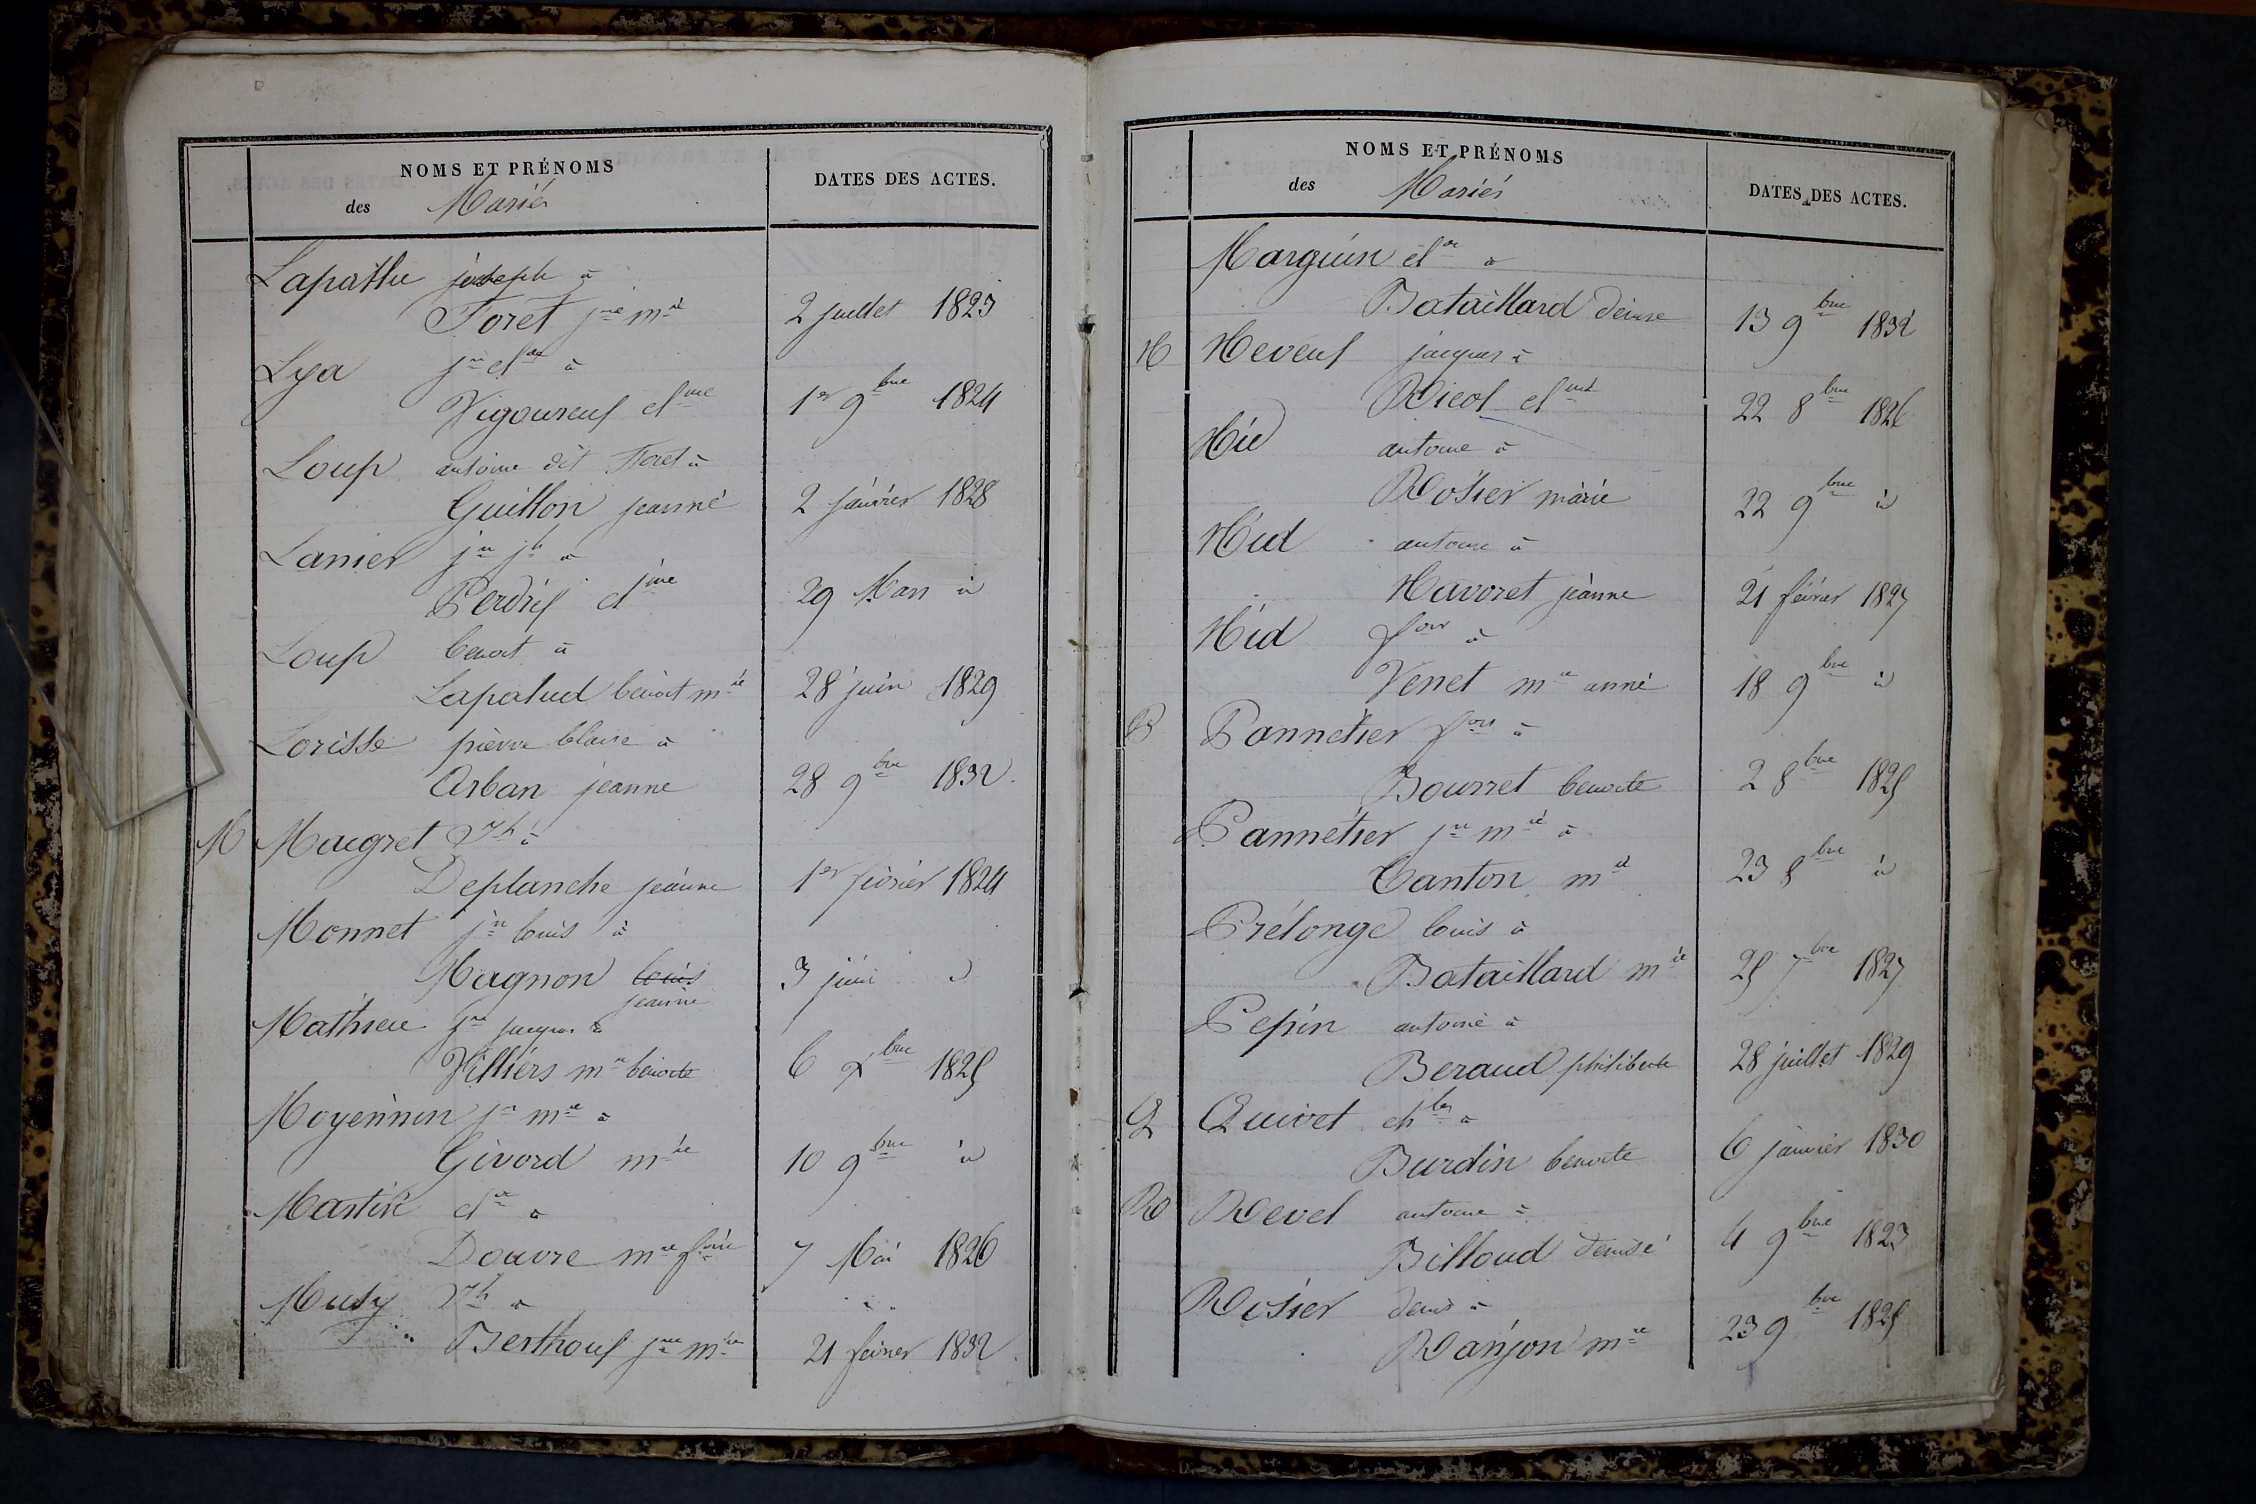 NOMS ET PRÉNOMS
des Mariés
DATES DES ACTES.
Lapathe joseph à
Foret jne mie 2 juillet 1823
Lya jn cl de à
Vigoureux cl me 1er 9bre 1824
Loup antoine dit Foret à
Guillon jeanne 2 janvier 1828
Lanier jn jh à
Perdrix cl me 29 Mars id
Loup benoit à
Lapalud benoit mie 28 juin 1829
Lorisse pierre blaise à
Arban jeanne 28 9bre 1832
M Maigret à
Deplanche jeanne 1er février 1824
Monnet jn louis à
Magnon louis 3 juin id
jeanne
Mathieu jn jacques à
Villiers mie benoite 6 Xbre 1825
Moyennin jn mie à
Givord mie 10 9bre id
Martin cl de à
Douvre mie fçoise 7 Mai 1826
Musy à
Berthoux jne mie 21 février 1832
NOMS ET PRÉNOMS
des Mariés
DATES DES ACTES.
Marguin cl de à
Bataillard denise 13 9bre 1832
N Neveux jacques à
Ricol cl 22 8bre 1826
Nid antoine à
Rosier marie 22 9bre id
Nid antoine à
Navoret jeanne 21 février 1827
Nid fçois à
Venet mie anne 18 9bre id
P Pannetier fçois à
Bourret benoite 2 8bre 1825
Pannetier jn mie à
Canton mie 23 8bre id
Prélonge louis à
Bataillard mie 25 7bre 1827
Pepin antoine à
Beraud philiberte 28 juillet 1829
Q Quivet ch les à
Burdin benoite 6 janvier 1830
R Revel antoine à
Billoud denise 4 9bre 1823
Rosier denis à
Ranjon mie 23 9bre 1825